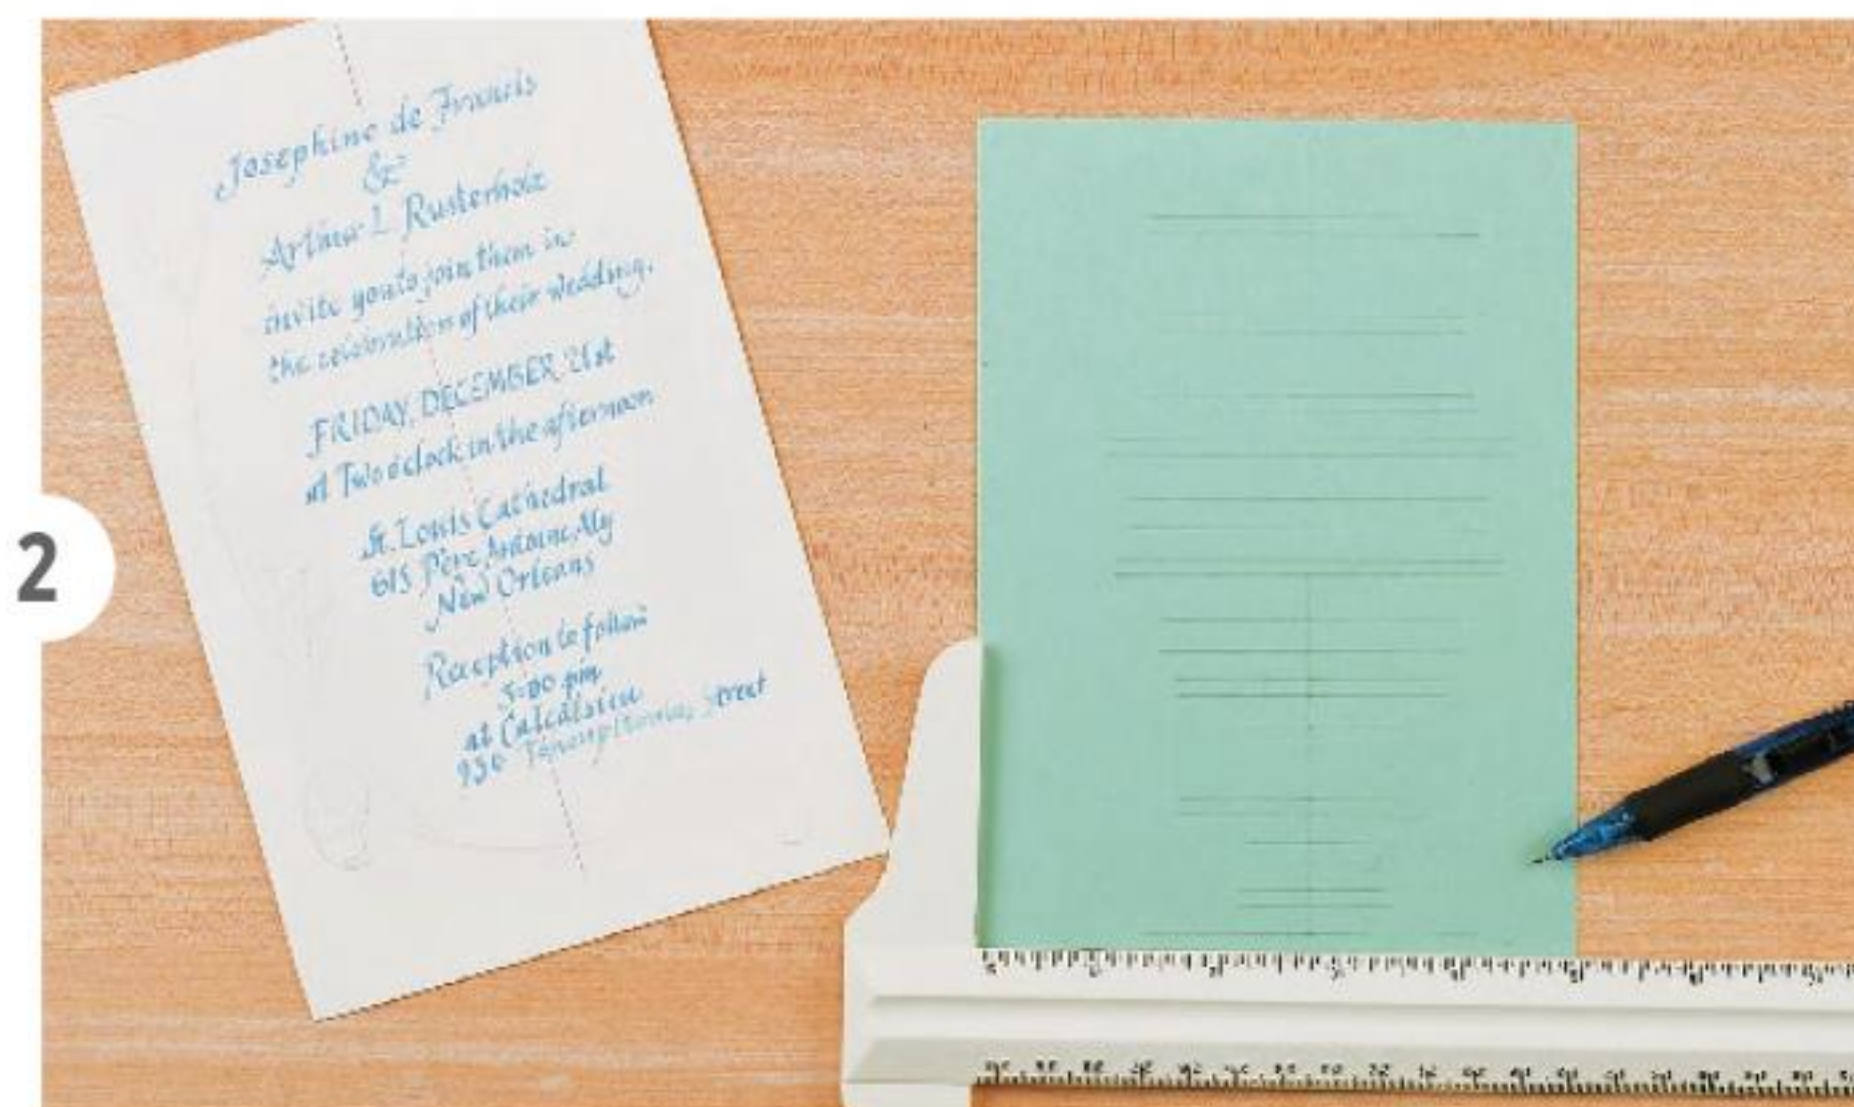 2
Josephine de Francis
&
Arthur L Rusterholz
invite you to join them in
the celebration of their wedding.
FRIDAY, DECEMBER 21st
at Two o'clock in the afternoon
St. Louis Cathedral
615 Pere Antoine Aly
New Orleans
Reception to follow
5:00 pm
at Calcasieu
930 Street